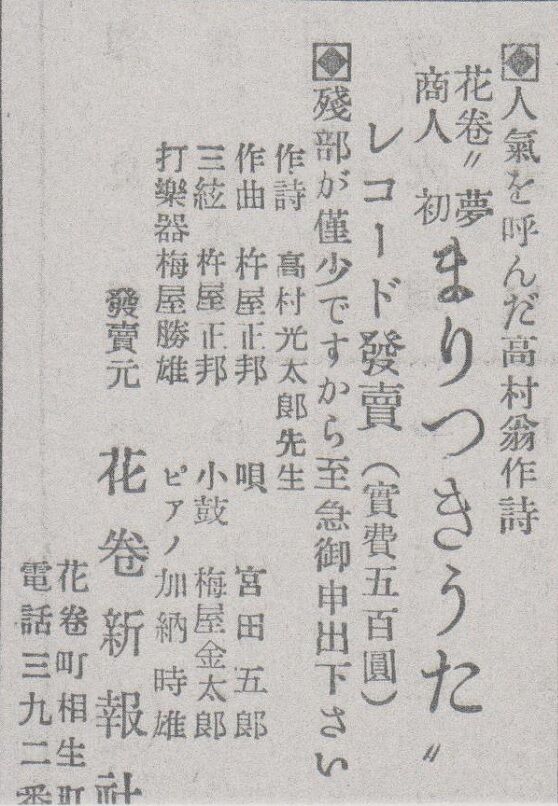 ◈人氣を呼んだ高村翁作詩
花卷〃夢
商人 初
まりつきうた〃
レコード發賣(實費五百圓)
◈殘部が僅少ですから至急御申出下さい
作詩 高村光太郎先生
作曲 杵屋正邦 唄 宮田五郎
三絃 杵屋正邦 小鼓 梅屋金太郎
打樂器梅屋勝雄 ピアノ加納時雄
發賣元 花卷新報社
花卷町相生町
電話三九二番